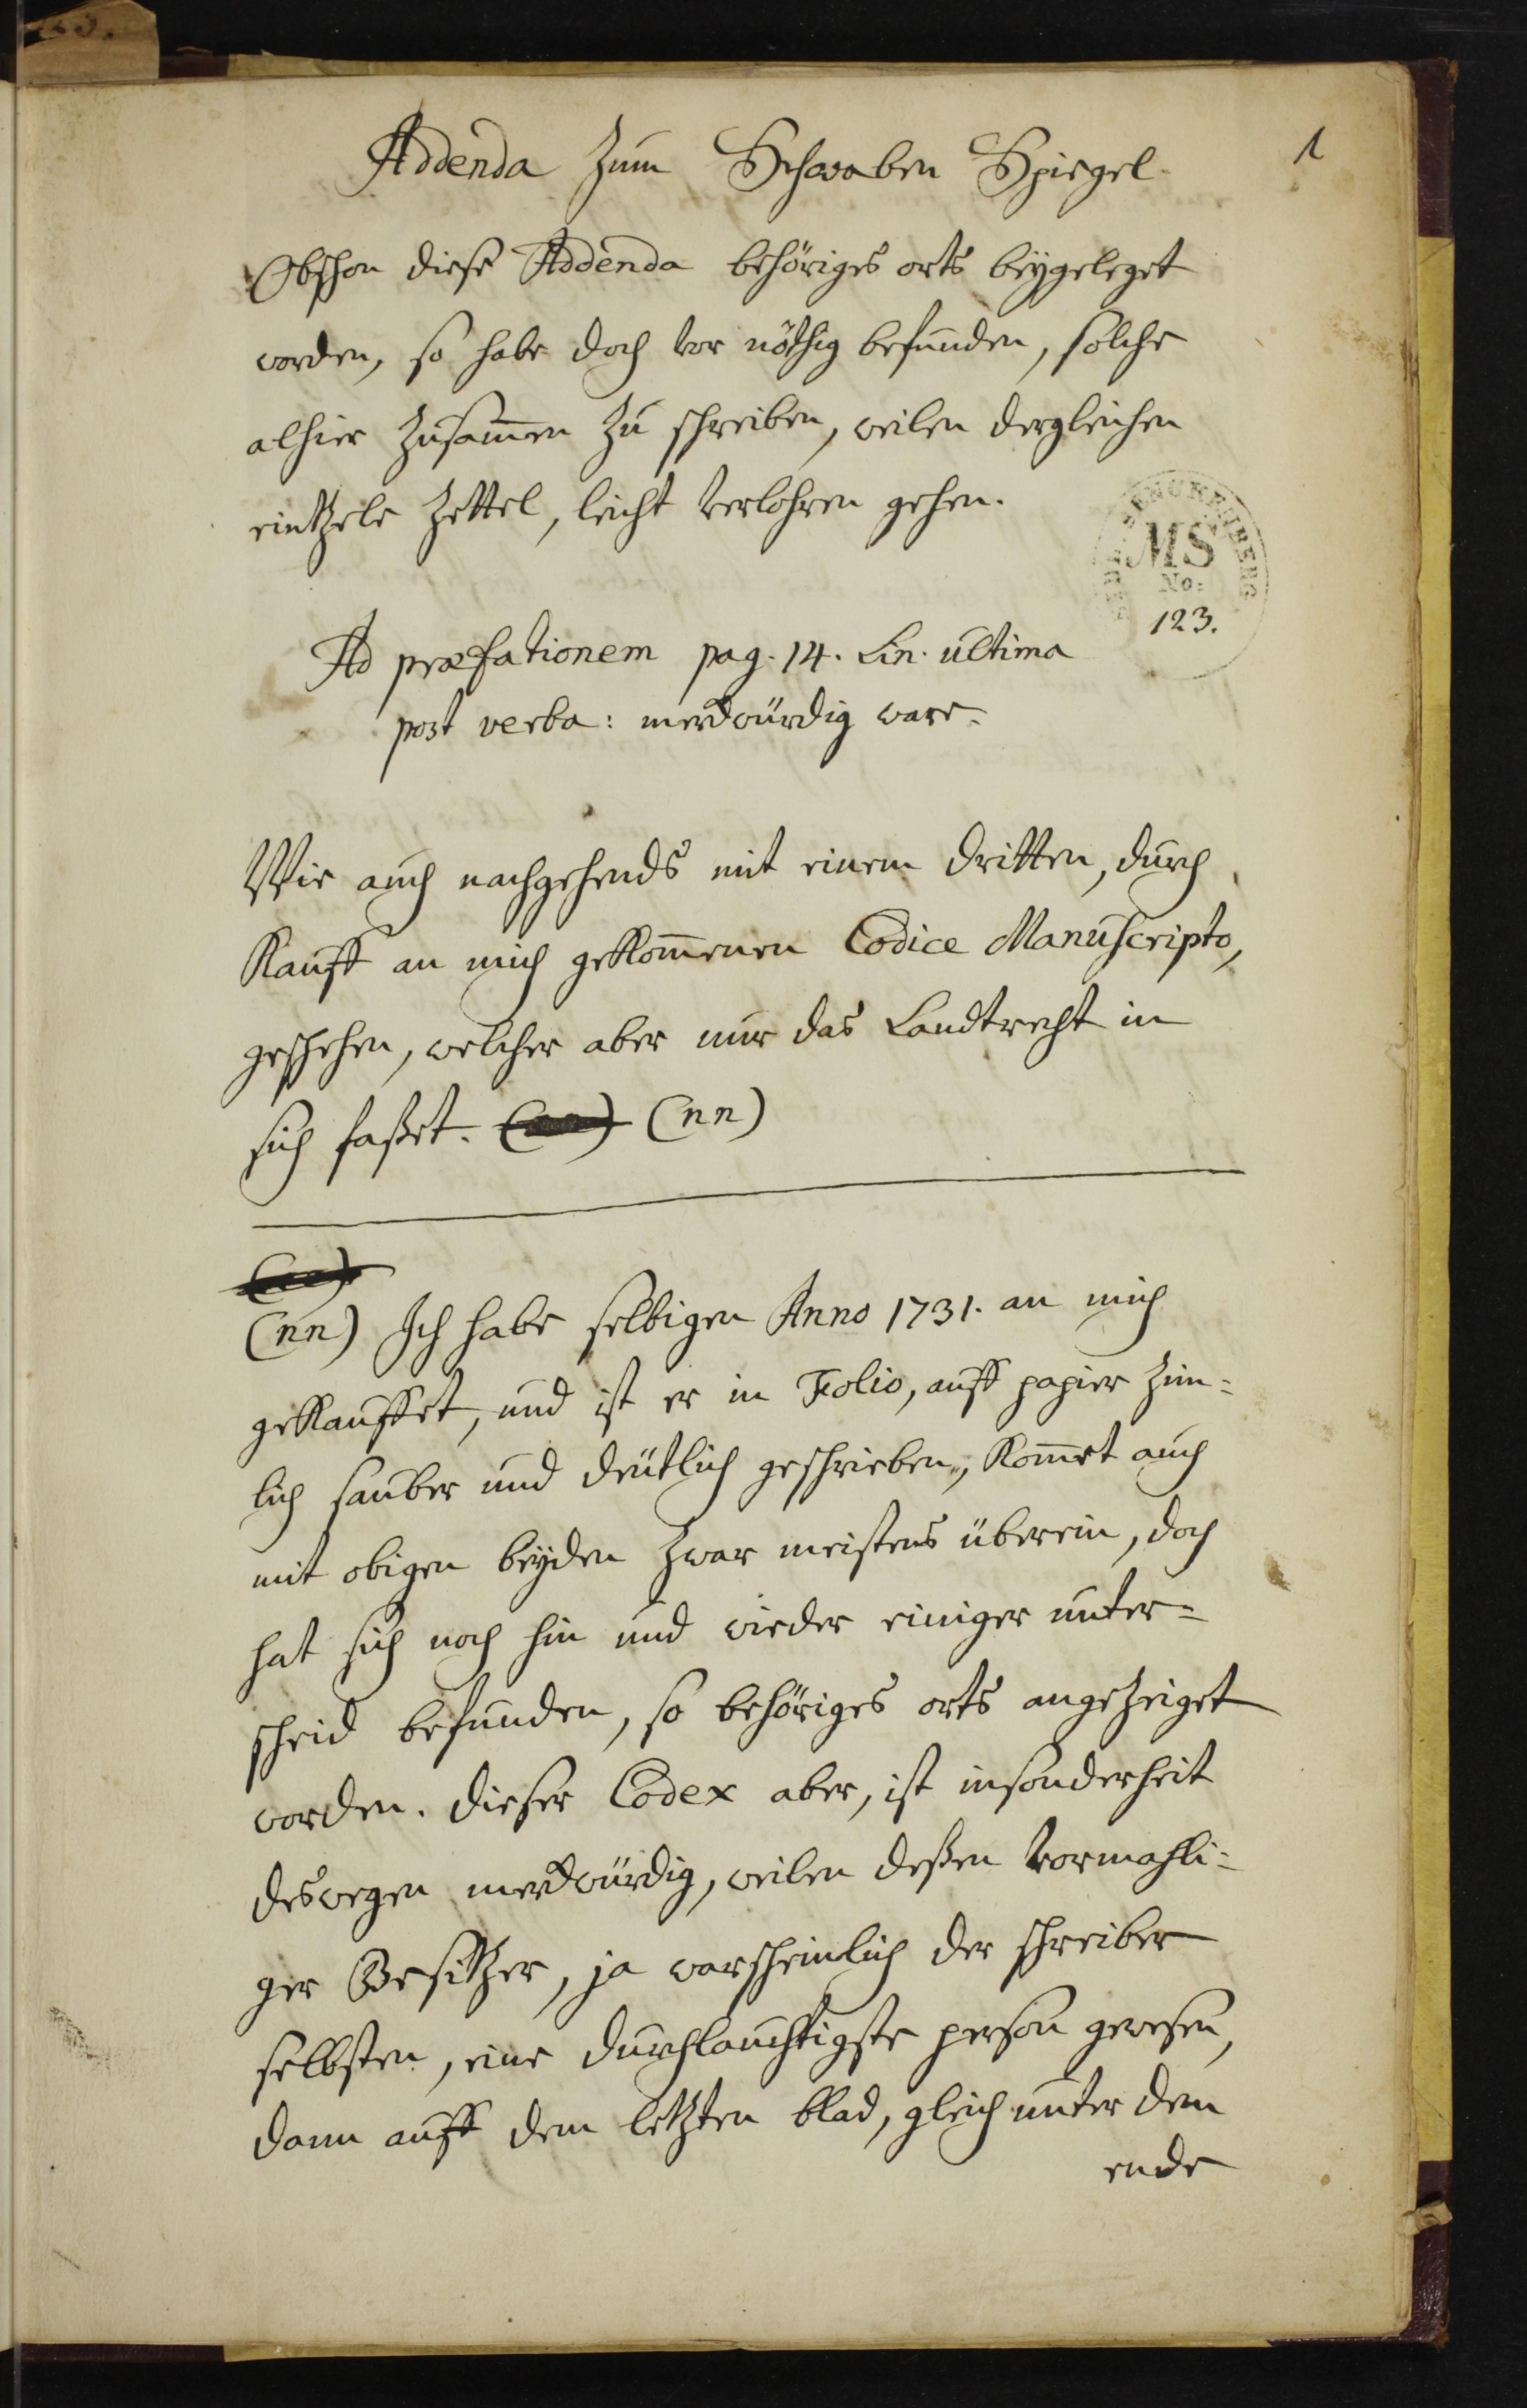 1
Addenda zum Schwaben Spiegel.
Obschon diese Addenda behöriges orts beygeleget
worden, so habe doch vor nöthig befunden, solche
alhier zusam̄en zu schreiben, weilen dergleichen
eintzele Zettel, leicht verlohren gehen.
SENCKENBERG
MS
No:
123.
Ad præfationem pag. 14. Lin. ultima
post verba: merckwürdig ware.
Wie auch nachgehends mit einem dritten, durch
Kauff an mich gekom̄enen Codice Manuscripto,
geschehen, welcher aber nur das Landtrecht in
sich faßet. (nn)
(nn) Ich habe selbigen Anno 1731. an mich
gekauffet, und ist er in Folio, auff papier zim=
lich sauber und deutlich geschrieben, kom̄et auch
mit obigen beyden zwar meistens überein, doch
hat sich noch hin und wieder einiger unter=
scheid befunden, so behöriges orts angezeiget
worden. dieser Codex aber, ist insonderheit
deswegen merckwürdig, weilen deßen vormahli=
ger Besitzer, ja warscheinlich der schreiber
selbsten, eine durchlauchtigste person gewesen,
dann auff dem letzten blad, gleich unter dem
ende